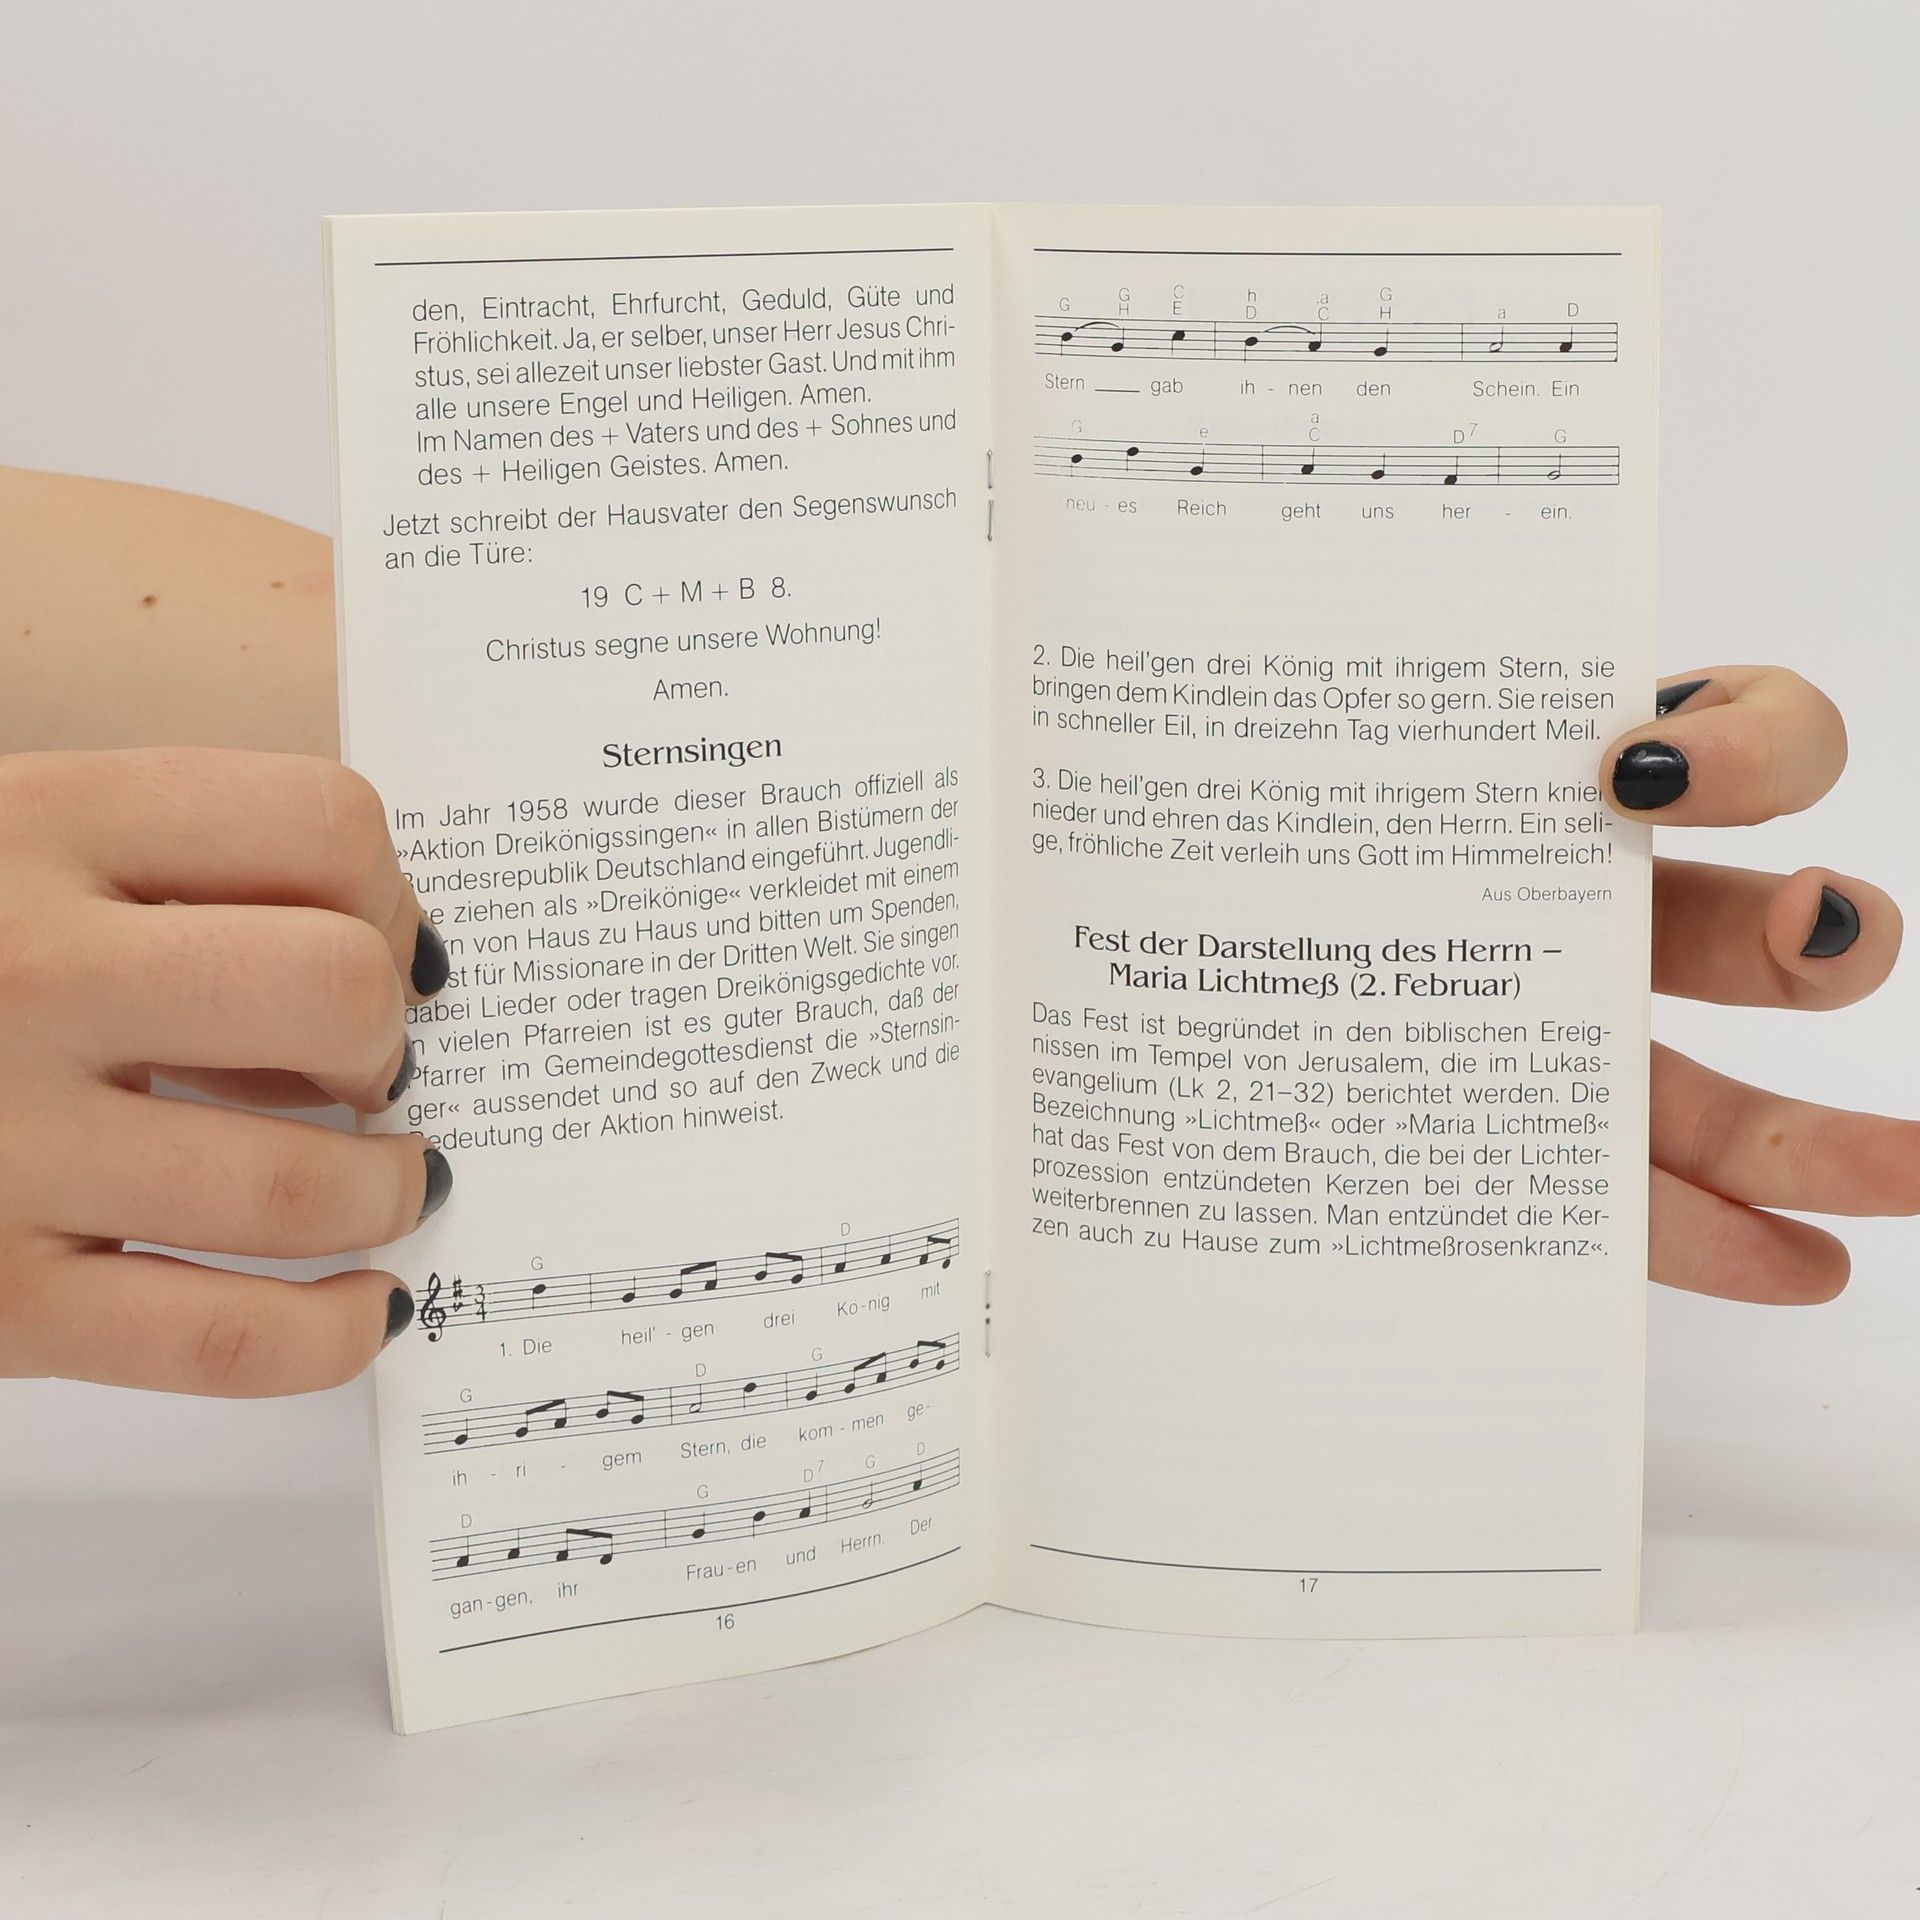 den, Eintracht, Ehrfurcht, Geduld, Güte und
Fröhlichkeit. Ja, er selber, unser Herr Jesus Chri-
stus, sei allezeit unser liebster Gast. Und mit ihm
alle unsere Engel und Heiligen. Amen.
Im Namen des + Vaters und des + Sohnes und
des + Heiligen Geistes. Amen.
Jetzt schreibt der Hausvater den Segenswunsch
an die Türe:
19 C + M + B 8.
Christus segne unsere Wohnung!
Amen.
Sternsingen
Im Jahr 1958 wurde dieser Brauch offiziell als
»Aktion Dreikönigssingen« in allen Bistümern der
Bundesrepublik Deutschland eingeführt. Jugendli-
ziehen als »Dreikönige« verkleidet mit einem
von Haus zu Haus und bitten um Spenden,
für Missionare in der Dritten Welt. Sie singen
dabei Lieder oder tragen Dreikönigsgedichte vor.
vielen Pfarreien ist es guter Brauch, daß der
Pfarrer im Gemeindegottesdienst die »Sternsin-
ger« aussendet und so auf den Zweck und die
Bedeutung der Aktion hinweist.
G D
3
4
1. Die heil' - gen drei Kö - nig mit
G D G
ih - ri - gem Stern, die kom - men ge-
D G D7 G D
gan - gen, ihr Frau - en und Herrn. Der
16
G G C h a G a D
H E D C H
Stern ___ gab ih - nen den Schein. Ein
G e a C D7 G
neu - es Reich geht uns her - ein.
2. Die heil'gen drei König mit ihrigem Stern, sie
bringen dem Kindlein das Opfer so gern. Sie reisen
in schneller Eil, in dreizehn Tag vierhundert Meil.
3. Die heil'gen drei König mit ihrigem Stern knien
nieder und ehren das Kindlein, den Herrn. Ein seli-
ge, fröhliche Zeit verleih uns Gott im Himmelreich!
Aus Oberbayern
Fest der Darstellung des Herrn –
Maria Lichtmeß (2. Februar)
Das Fest ist begründet in den biblischen Ereig-
nissen im Tempel von Jerusalem, die im Lukas-
evangelium (Lk 2, 21–32) berichtet werden. Die
Bezeichnung »Lichtmeß« oder »Maria Lichtmeß«
hat das Fest von dem Brauch, die bei der Lichter-
prozession entzündeten Kerzen bei der Messe
weiterbrennen zu lassen. Man entzündet die Ker-
zen auch zu Hause zum »Lichtmeßrosenkranz«.
17